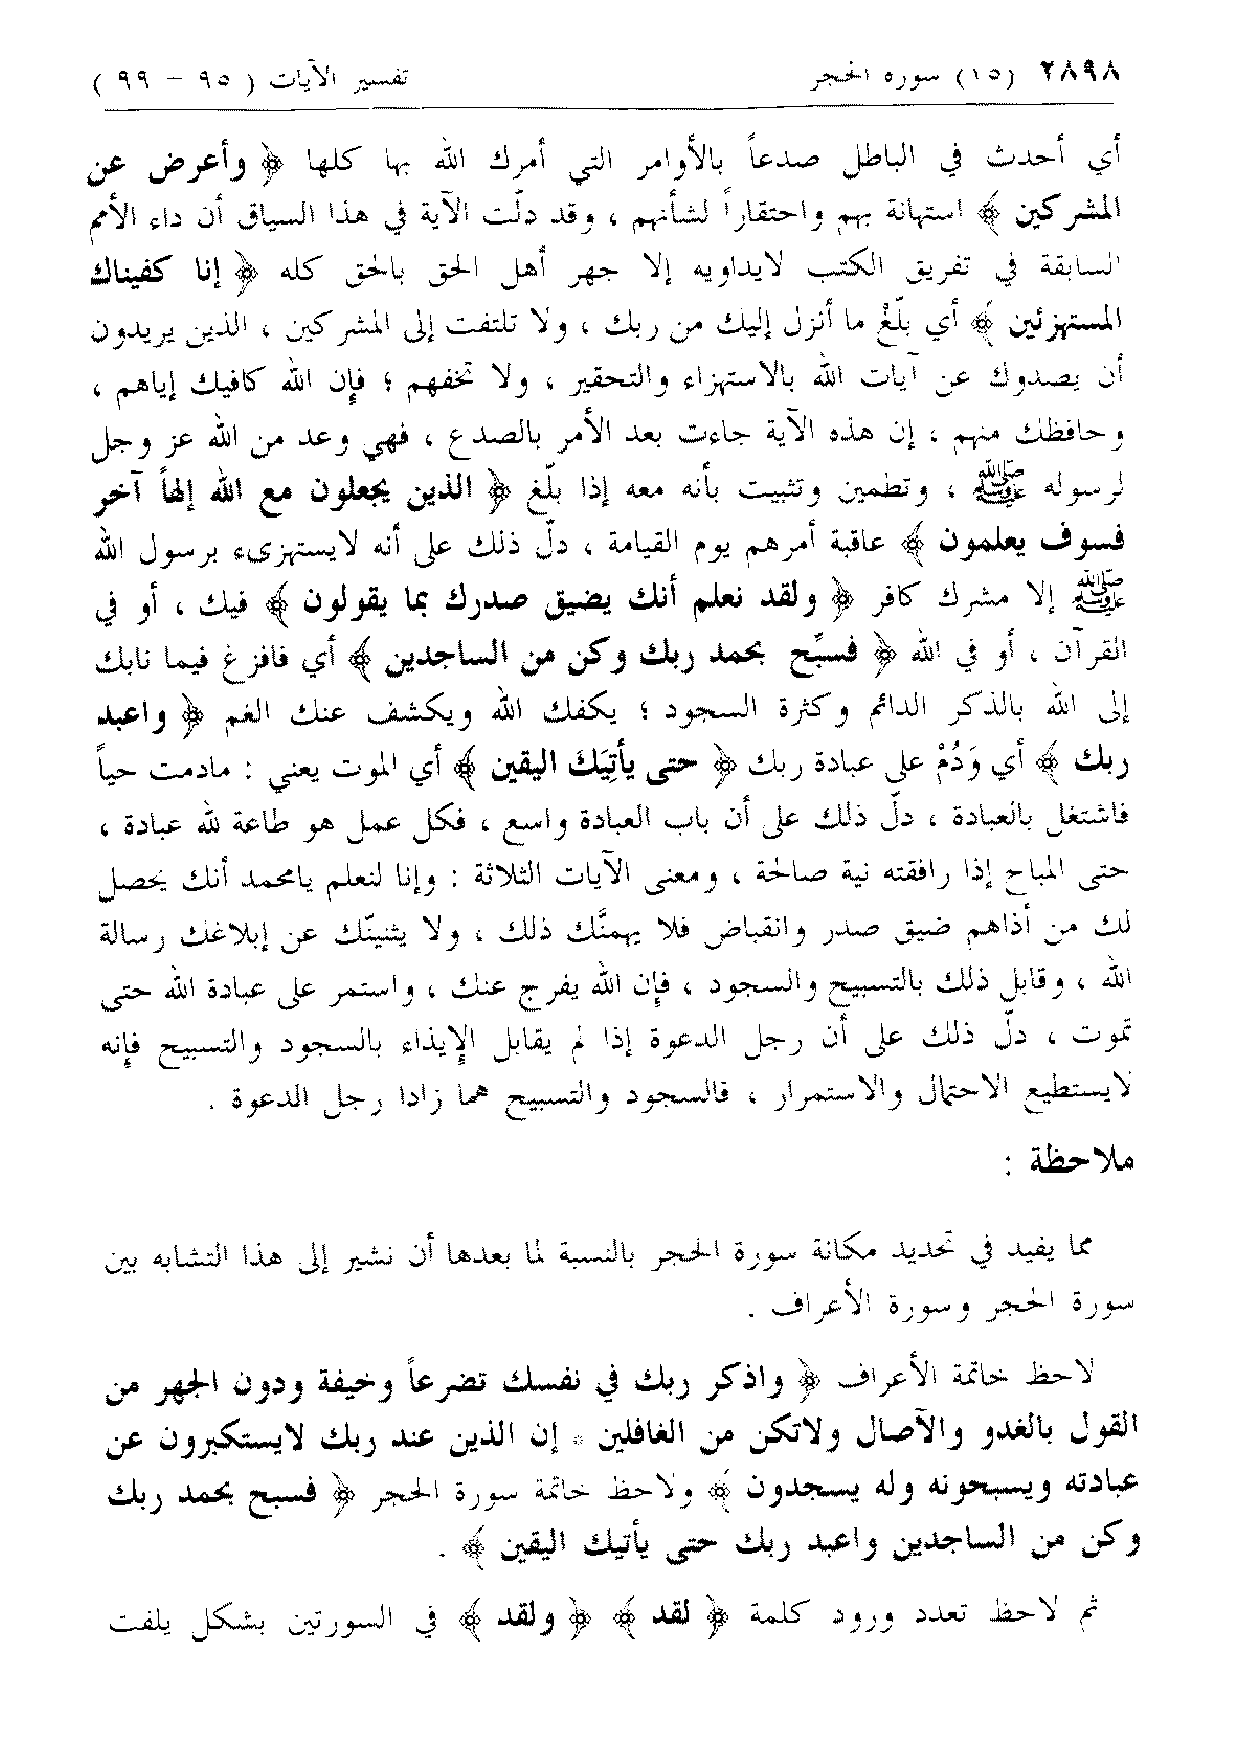 ٢٨٩٨ (١٥) سوره الحجر تفسير الآيات ( ٩٥ – ٩٩ )
أي أحدث في الباطل صدعاً بالأوامر التي أمرك الله بها كلها ﴿ وأعرض عن
المشركين ﴾ استهانة بهم واحتقاراً لشأنهم ، وقد دلّت الآية في هذا السياق أن داء الأمم
السابقة في تفريق الكتب لايداويه إلا جهر أهل الحق بالحق كله ﴿ إنا كفيناك
المستهزئين ﴾ أي بلّغْ ما أنزل إليك من ربك ، ولا تلتفت إلى المشركين ، الذين يريدون
أن يصدوك عن آيات الله بالاستهزاء والتحقير ، ولا تخفهم ؛ فإن الله كافيك إياهم ،
وحافظك منهم ، إن هذه الآية جاءت بعد الأمر بالصدع ، فهي وعد من الله عز وجل
لرسوله ﷺ ، وتطمين وتثبيت بأنه معه إذا بلّغ ﴿ الذين يجعلون مع الله إلهاً آخر
فسوف يعلمون ﴾ عاقبة أمرهم يوم القيامة ، دلّ ذلك على أنه لايستهزىء برسول الله
ﷺ إلا مشرك كافر ﴿ ولقد نعلم أنك يضيق صدرك بما يقولون ﴾ فيك ، أو في
القرآن ، أو في الله ﴿ فسبِّح بحمد ربك وكن من الساجدين ﴾ أي فافزع فيما نابك
إلى الله بالذكر الدائم وكثرة السجود ؛ يكفك الله ويكشف عنك الغم ﴿ واعبد
ربك ﴾ أي وَدُمْ على عبادة ربك ﴿ حتى يأتِيَكَ اليقين ﴾ أي الموت يعني : مادمت حياً
فاشتغل بالعبادة ، دلّ ذلك على أن باب العبادة واسع ، فكل عمل هو طاعة لله عبادة ،
حتى المباح إذا رافقته نية صالحة ، ومعنى الآيات الثلاثة : وإنا لنعلم يامحمد أنك يحصل
لك من أذاهم ضيق صدر وانقباض فلا يهمنَّك ذلك ، ولا يثنينّك عن إبلاغك رسالة
الله ، وقابل ذلك بالتسبيح والسجود ، فإن الله يفرج عنك ، واستمر على عبادة الله حتى
تموت ، دلّ ذلك على أن رجل الدعوة إذا لم يقابل الإيذاء بالسجود والتسبيح فإنه
لايستطيع الاحتمال والاستمرار ، فالسجود والتسبيح هما زادا رجل الدعوة .
ملاحظة :
مما يفيد في تحديد مكانة سورة الحجر بالنسبة لما بعدها أن نشير إلى هذا التشابه بين
سورة الحجر وسورة الأعراف .
لاحظ خاتمة الأعراف ﴿ واذكر ربك في نفسك تضرعاً وخيفة ودون الجهر من
القول بالغدو والآصال ولاتكن من الغافلين * إن الذين عند ربك لايستكبرون عن
عبادته ويسبحونه وله يسجدون ﴾ ولاحظ خاتمة سورة الحجر ﴿ فسبح بحمد ربك
وكن من الساجدين واعبد ربك حتى يأتيك اليقين ﴾ .
ثم لاحظ تعدد ورود كلمة ﴿ لقد ﴾ ﴿ ولقد ﴾ في السورتين بشكل يلفت